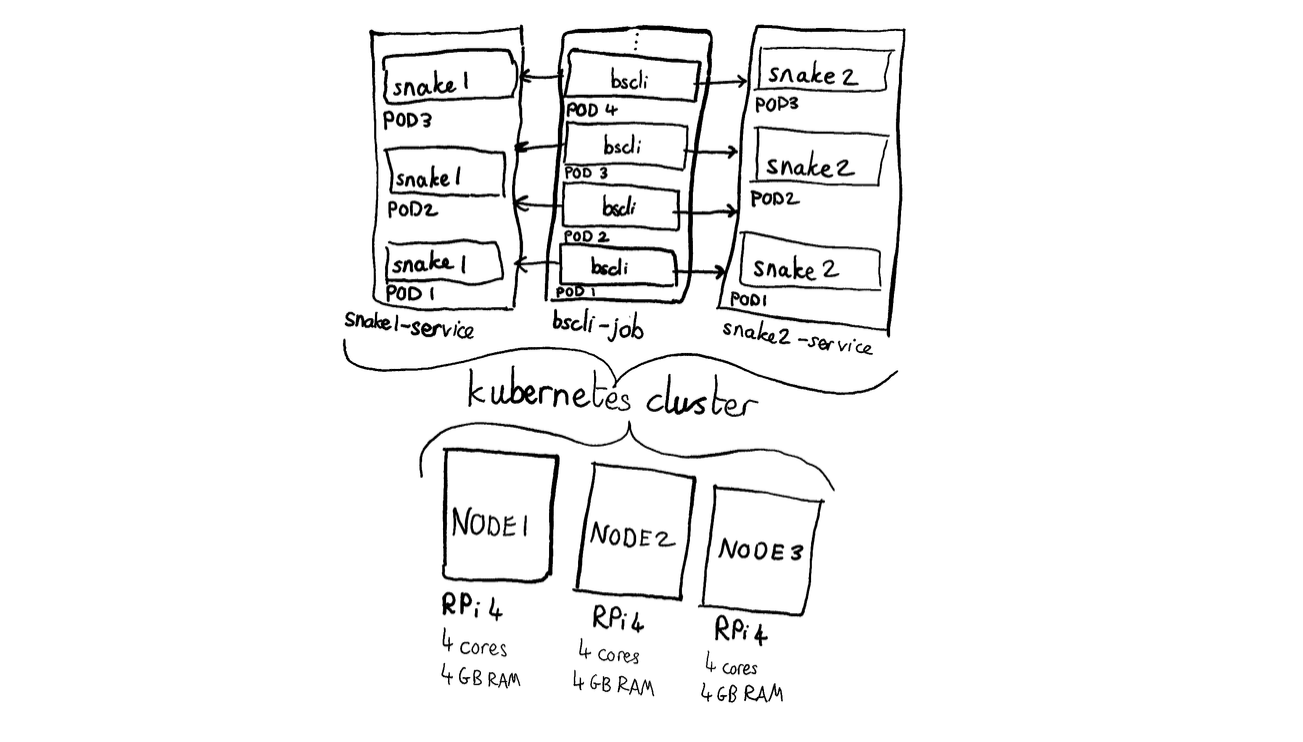 snake1
POD3
snake1
POD2
snake1
POD 1
snake1-service
bscli
POD 4
bscli
POD 3
bscli
POD 2
bscli
POD 1
bscli-job
snake2
POD3
snake2
POD2
snake2
POD1
snake2-service
kubernetes cluster
NODE1
RPi 4
4 cores
4 GB RAM
NODE2
RPi4
4 cores
4 GB RAM
NODE3
RPi4
4 cores
4GB RAM